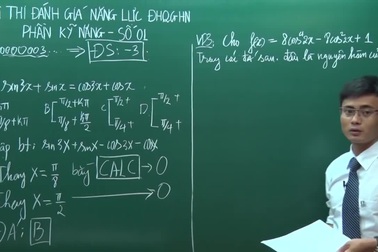 THI ĐÁNH GIÁ NĂNG LỰC ĐHQGHN
PHẦN KỸ NĂNG - SỐ 01
0000003 ... → ĐS: -3
sin3x + sinx = cos3x + cosx
B[π/2+kπ
π/8+k π/2
C[π/2+
π/4+
D[π/2+
π/4+
π/8+kπ
bt: sin3X+sinX-cos3X-cosX
Thay X = π/8 bấy CALC → 0
Thay X = π/2 → 0
ĐA: B
VD5: Cho f(x) = 8cos⁴2x - 8cos²2x + 1
Trong các h/s sau. đâu là nguyên hàm của